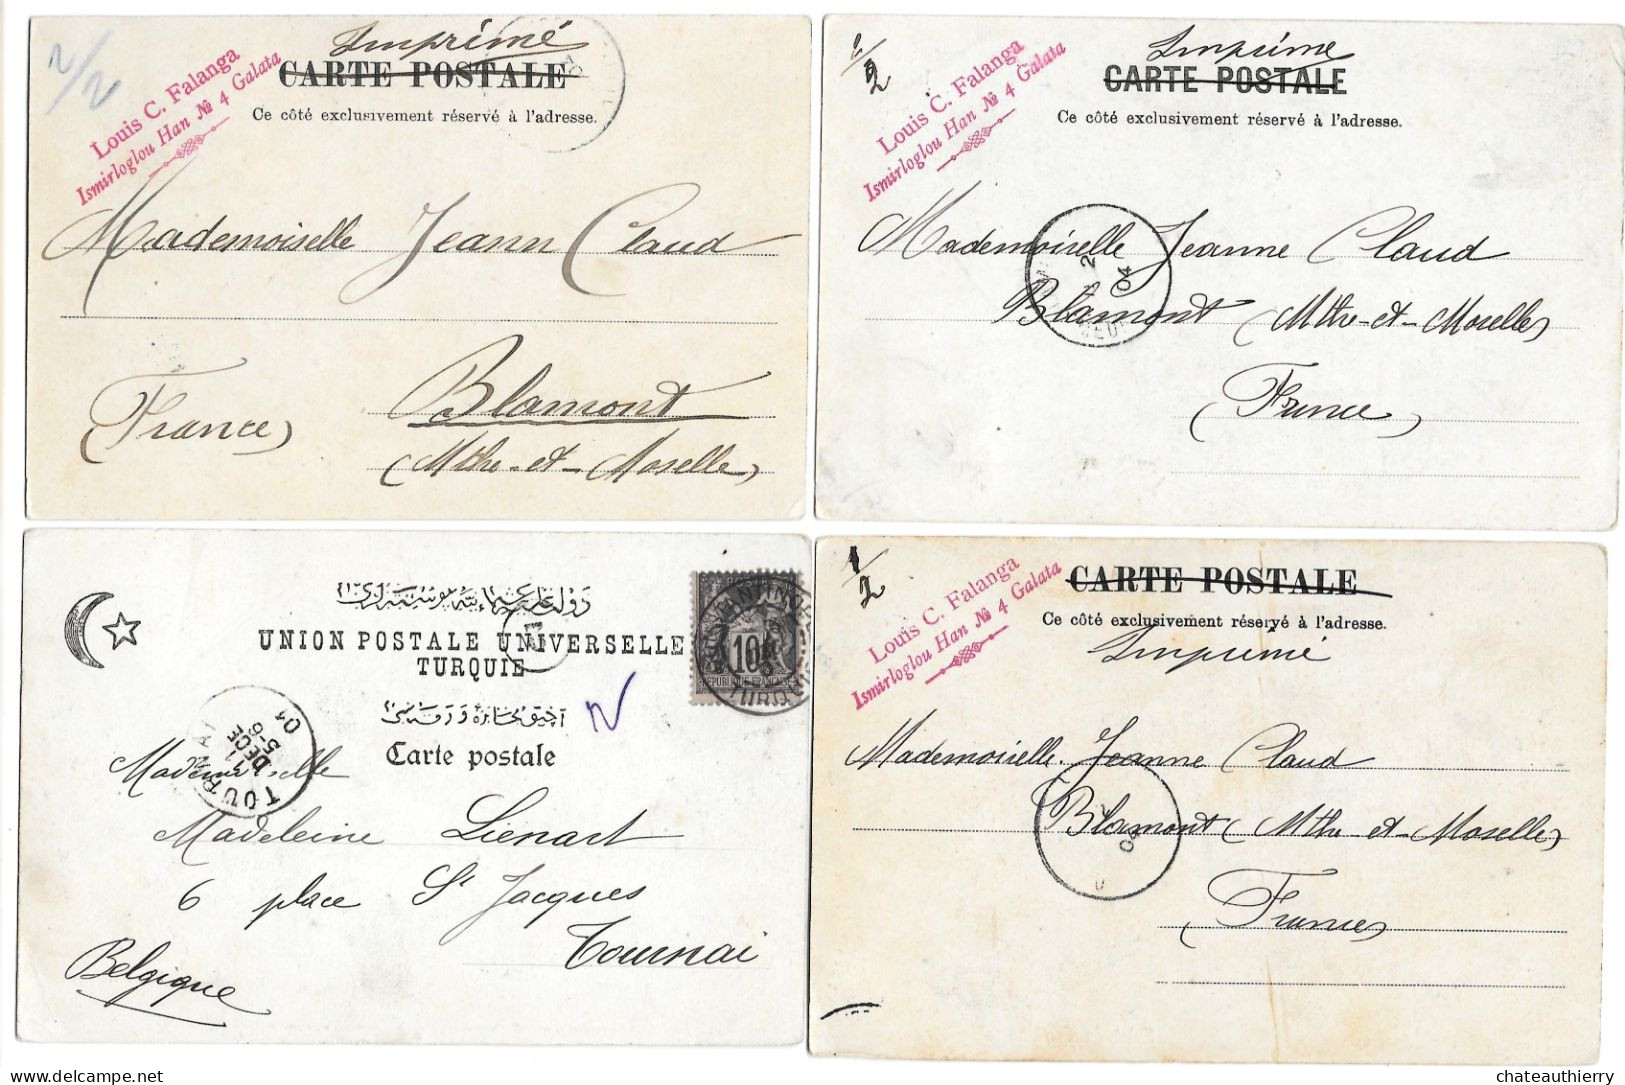 2/2
Imprimé
CARTE POSTALE
Ce côté exclusivement réservé à l'adresse.
Louis C. Falanga
Ismirloglou Han № 4 Galata
Mademoiselle Jeann Claud
Blamont
(France)
(Mthe-et-Moselle)
1/2
Imprimé
CARTE POSTALE
Ce côté exclusivement réservé à l'adresse.
Louis C. Falanga
Ismirloglou Han № 4 Galata
2
04
Mademoiselle Jeanne Claud
Blamont (Mthe-et-Moselle)
(France)
UNION POSTALE UNIVERSELLE
TURQUIE
Carte postale
POSTES
10
REPUBLIQUE FRANÇAISE
CONSTANTINOPLE
TURQUIE
TOURNAI
DEC
04
Mademoiselle
Madeleine Liénart
6 place St Jacques
Tournai
Belgique
1/2
CARTE POSTALE
Ce côté exclusivement réservé à l'adresse.
Imprimé
Louis C. Falanga
Ismirloglou Han № 4 Galata
04
Mademoiselle Jeanne Claud
Blamont (Mthe-et-Moselle)
(France)
chateauthierry